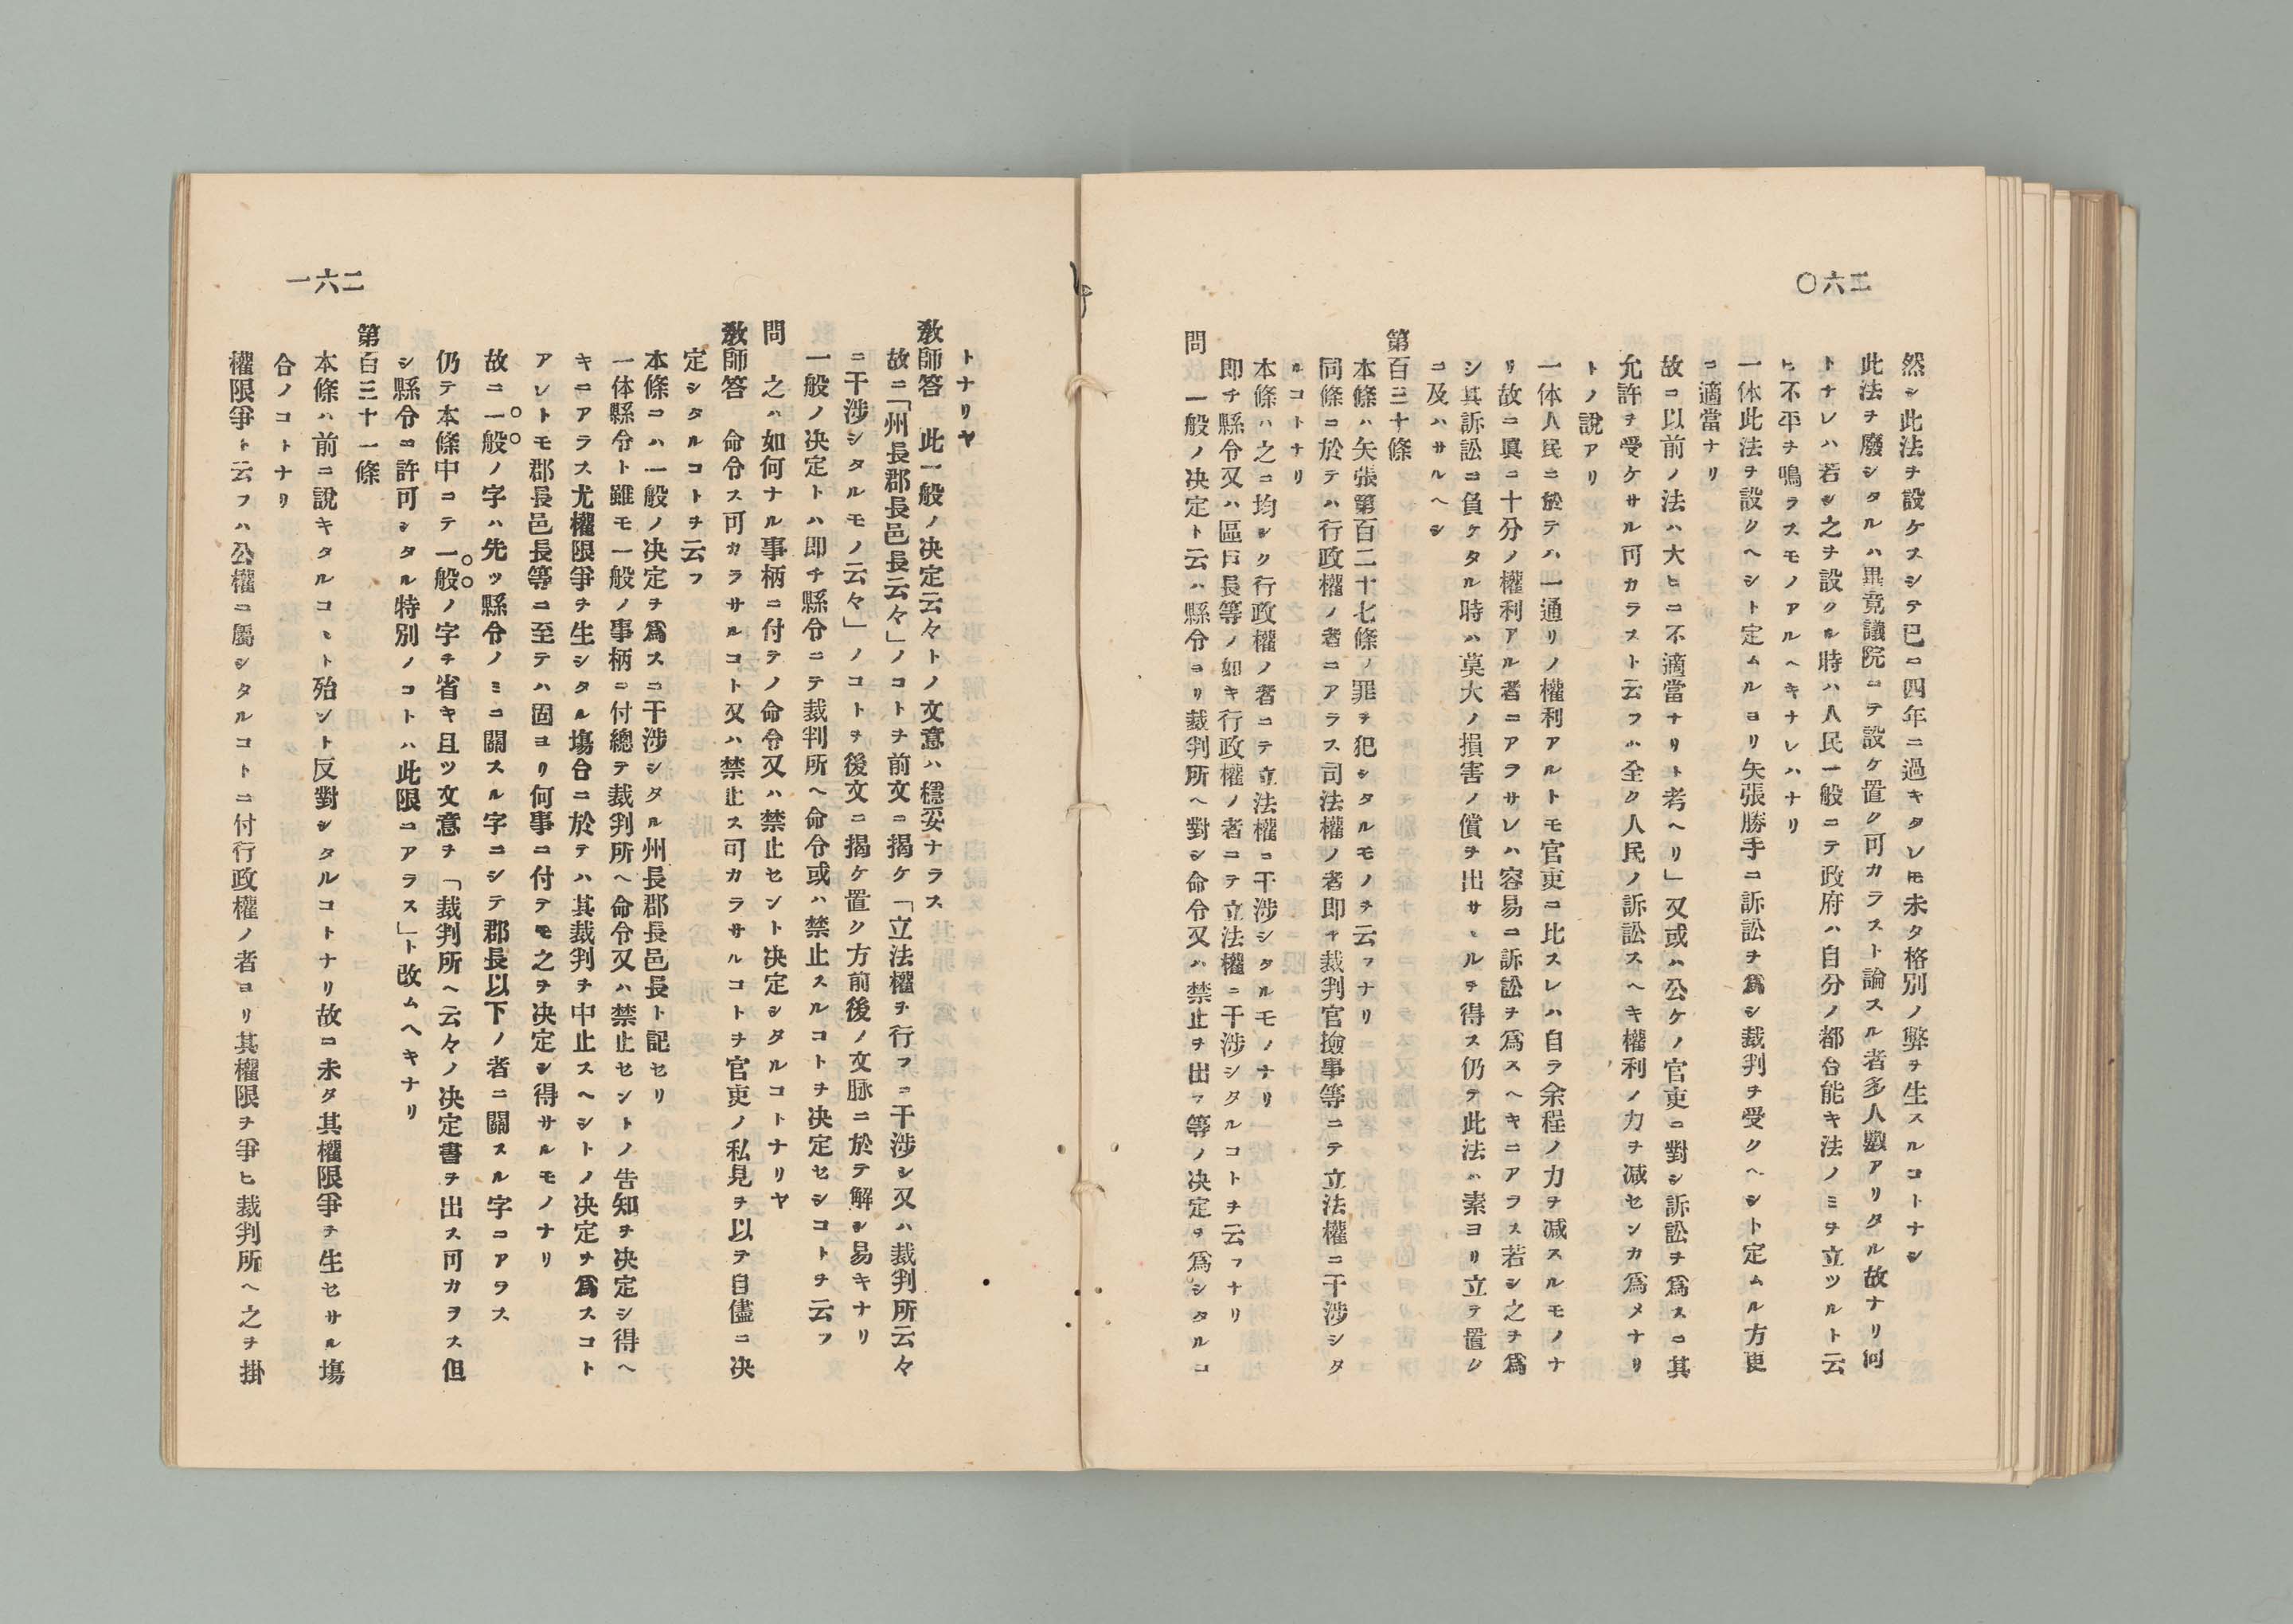 二六〇
然シ此法ヲ設ケスシテ已ニ四年ニ過キタレ𪜈未タ格別ノ弊ヲ生スルコトナシ
此法ヲ廢シタルハ畢竟議院ニテ設ケ置ク可カラスト論スル者多人數アリタル故ナリ何
トナレハ若シ之ヲ設クル時ハ人民一般ニテ政府ハ自分ノ都合能キ法ノミヲ立ツルト云
ヒ不平ヲ鳴ラスモノアルヘキナレハナリ
一体此法ヲ設クヘシト定ムルヨリ矢張勝手ニ訴訟ヲ爲シ裁判ヲ受クヘシト定ムル方更
ニ適當ナリ
故ニ以前ノ法ハ大ヒニ不適當ナリト考ヘリ」又或ハ公ケノ官吏ニ對シ訴訟ヲ爲スニ其
允許ヲ受ケサル可カラスト云フハ全ク人民ノ訴訟スヘキ權利ノ力ヲ减センカ爲メナリ
トノ說アリ
一体人民ニ於テハ一通リノ權利アルトモ官吏ニ比スレハ自ラ余程ノ力ヲ减スルモノナ
リ故ニ眞ニ十分ノ權利アル者ニアラサレハ容易ニ訴訟ヲ爲スヘキニアラス若シ之ヲ爲
シ其訴訟ニ負ケタル時ハ莫大ノ損害ノ償ヲ出サヽルヲ得ス仍テ此法ハ素ヨリ立テ置ク
ニ及ハサルヘシ
第百三十條
本條ハ矢張第百二十七條ノ罪ヲ犯シタルモノヲ云フナリ
同條ニ於テハ行政權ノ者ニアラス司法權ノ者即チ裁判官撿事等ニテ立法權ニ干涉シタ
ルコトナリ
本條ハ之ニ均シク行政權ノ者ニテ立法權ニ干涉シタルモノナリ
即チ縣令又ハ區戸長等ノ如キ行政權ノ者ニテ立法權ニ干涉シタルコトヲ云フナリ
問　一般ノ决定ト云ハ縣令ヨリ裁判所ヘ對シ命令又ハ禁止ヲ出ス等ノ决定ヲ爲シタルコ
二六一
トナリヤ
敎師答　此一般ノ决定云々トノ文意ハ穩妥ナラス
故ニ「州長郡長邑長云々」ノコトヲ前文ニ揭ケ「立法權ヲ行フニ干涉シ又ハ裁判所云々
ニ干涉シタルモノ云々」ノコトヲ後文ニ揭ケ置ク方前後ノ文脉ニ於テ解シ易キナリ
一般ノ决定トハ即チ縣令ニテ裁判所ヘ命令或ハ禁止スルコトヲ决定セシコトヲ云フ
問　之ハ如何ナル事柄ニ付テノ命令又ハ禁止セント决定シタルコトナリヤ
敎師答　命令ス可カラサルコト又ハ禁止ス可カラサルコトヲ官吏ノ私見ヲ以テ自儘ニ决
定シタルコトヲ云フ
本條ニハ一般ノ决定ヲ爲スニ干涉シタル州長郡長邑長ト記セリ
一体縣令ト雖モ一般ノ事柄ニ付總テ裁判所ヘ命令又ハ禁止セントノ告知ヲ决定シ得ヘ
キニアラス尤權限爭ヲ生シタル塲合ニ於テハ其裁判ヲ中止スヘシトノ决定ヲ爲スコト
アレトモ郡長邑長等ニ至テハ固ヨリ何事ニ付テモ之ヲ决定シ得サルモノナリ
故ニ一般ノ字ハ先ツ縣令ノミニ關スル字ニシテ郡長以下ノ者ニ關スル字ニアラス
仍テ本條中ニテ一般ノ字ヲ省キ且ツ文意ヲ「裁判所ヘ云々ノ决定書ヲ出ス可カラス但
シ縣令ニ許可シタル特別ノコトハ此限ニアラス」ト改ムヘキナリ
第百三十一條
本條ハ前ニ說キタルコヽト殆ント反對シタルコトナリ故ニ未タ其權限爭ヲ生セサル塲
合ノコトナリ
權限爭ト云フハ公權ニ屬シタルコトニ付行政權ノ者ヨリ其權限ヲ爭ヒ裁判所ヘ之ヲ掛